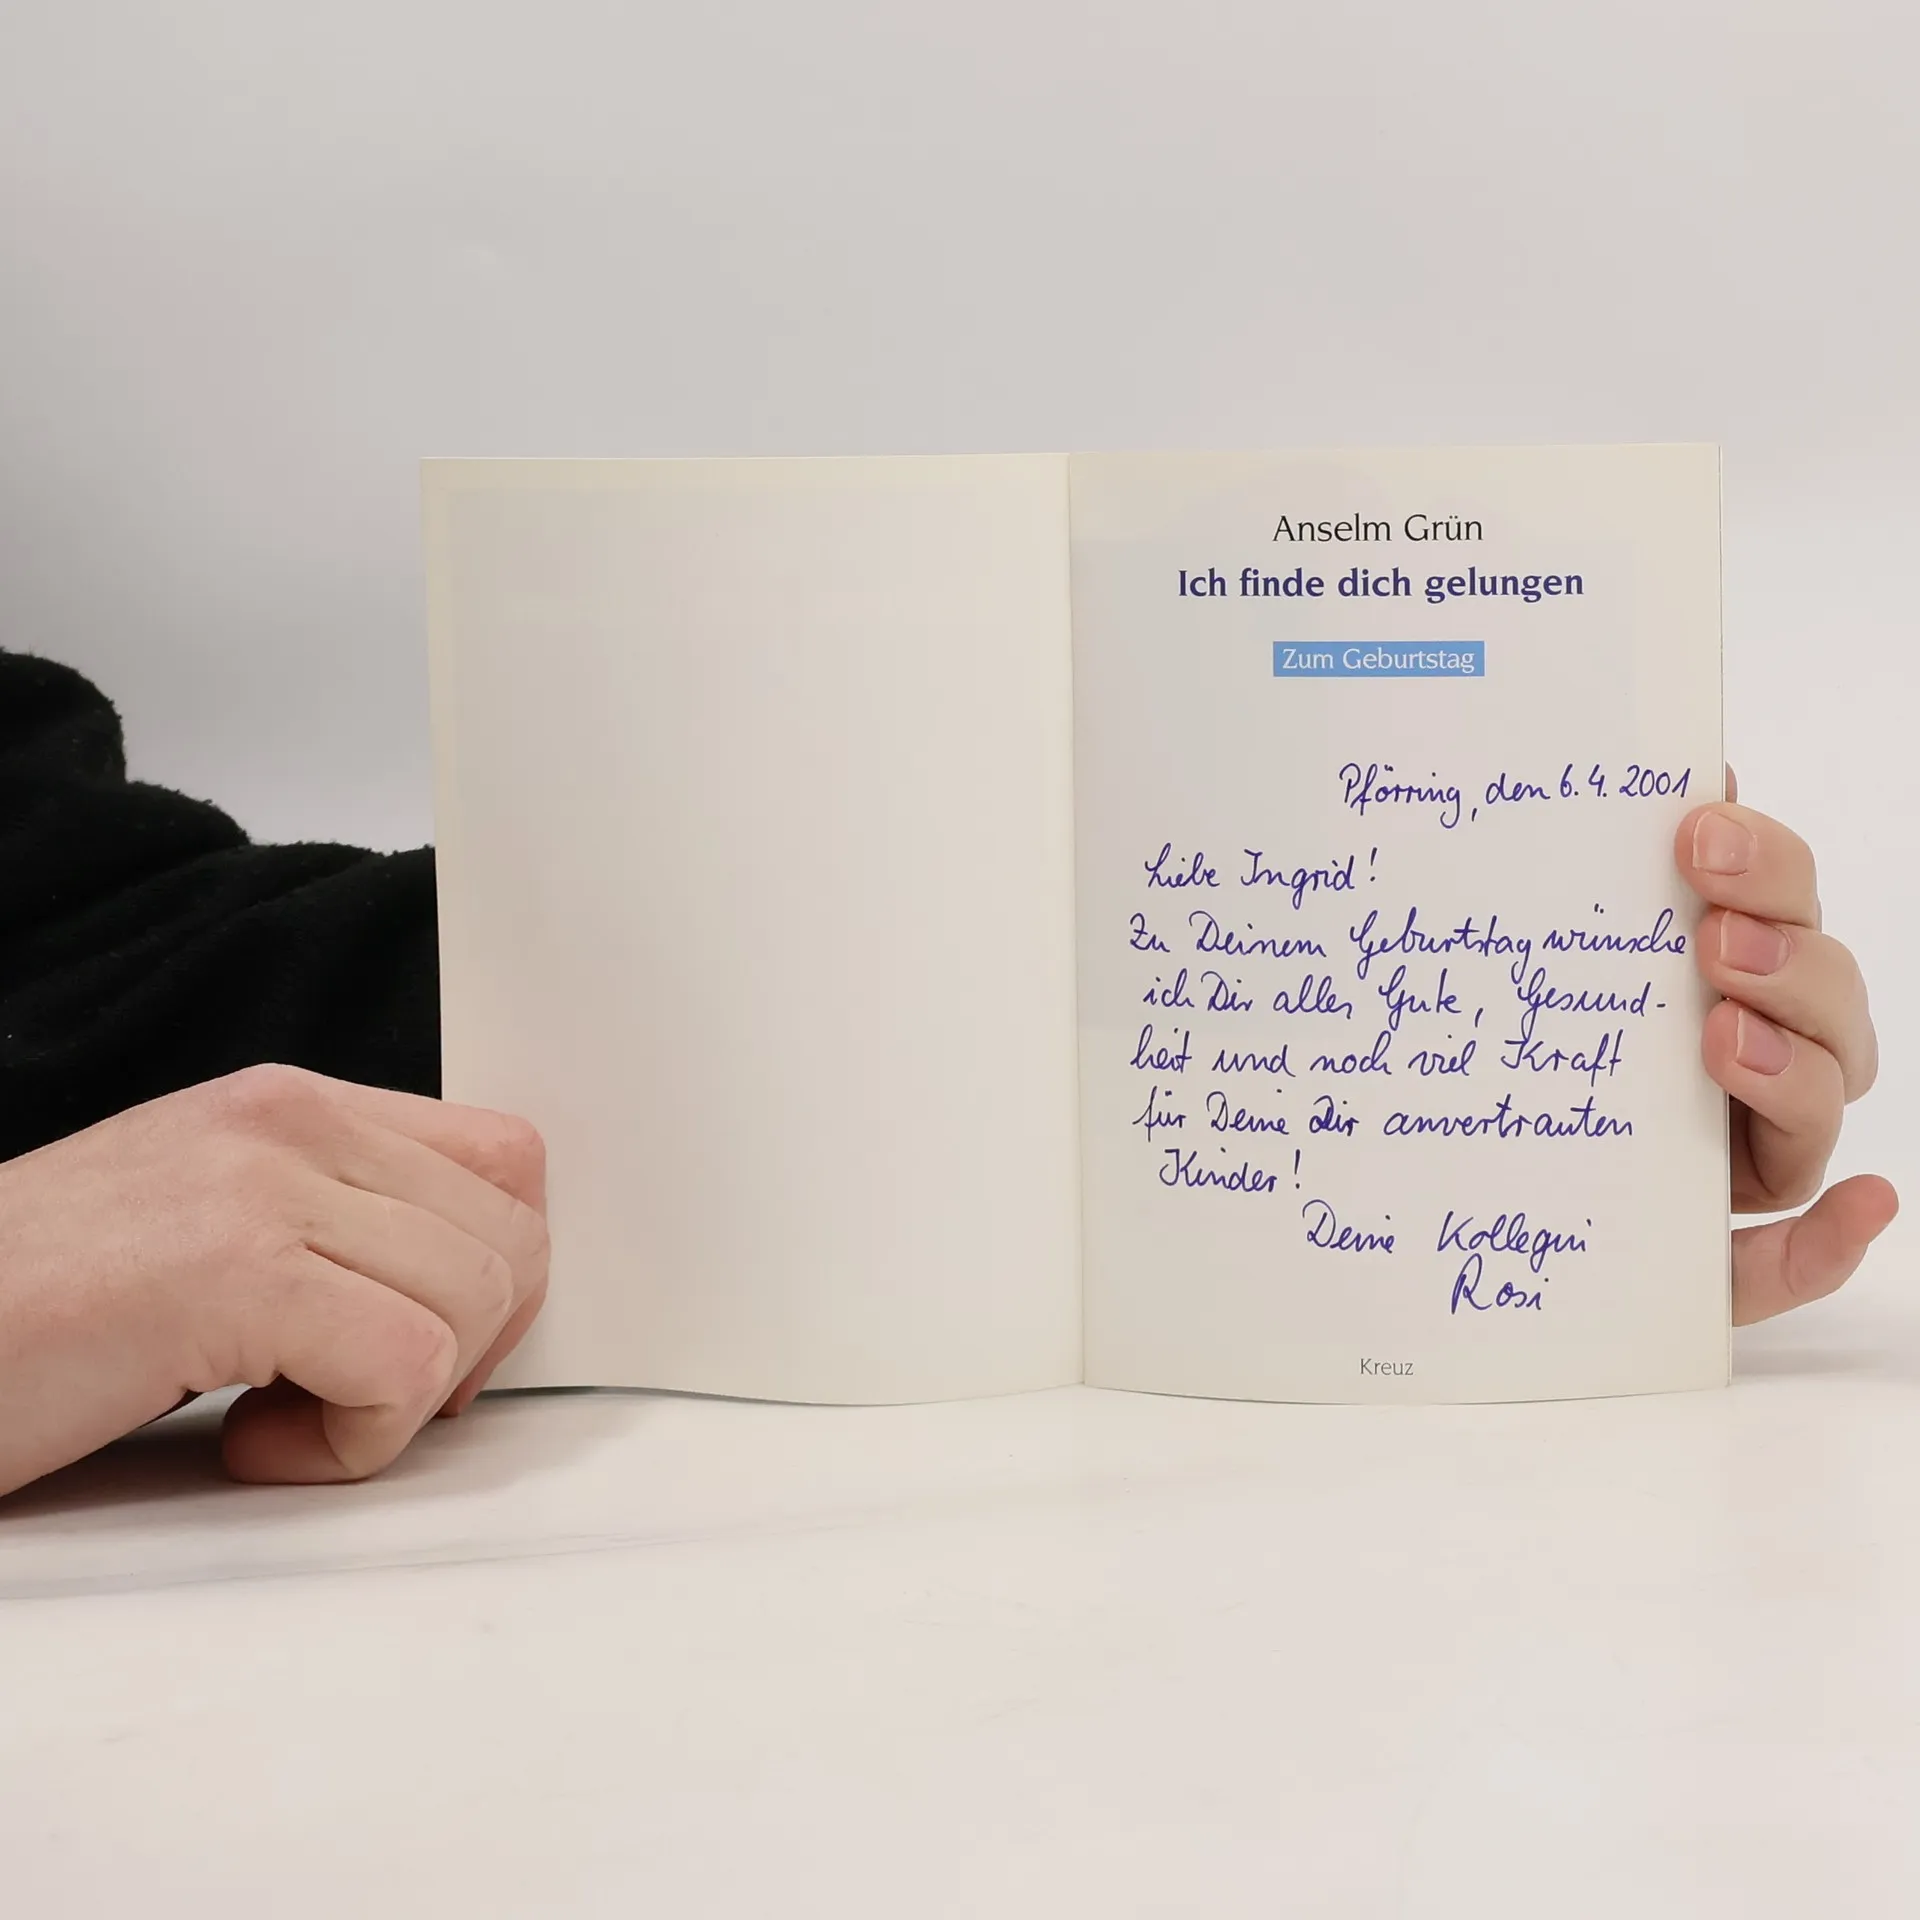 Anselm Grün
Ich finde dich gelungen
Zum Geburtstag
Pförring, den 6.4.2001
Liebe Ingrid!
Zu Deinem Geburtstag wünsche
ich Dir alles Gute, Gesund-
heit und noch viel Kraft
für Deine Dir anvertrauten
Kinder!
Deine Kollegin
Rosi
Kreuz